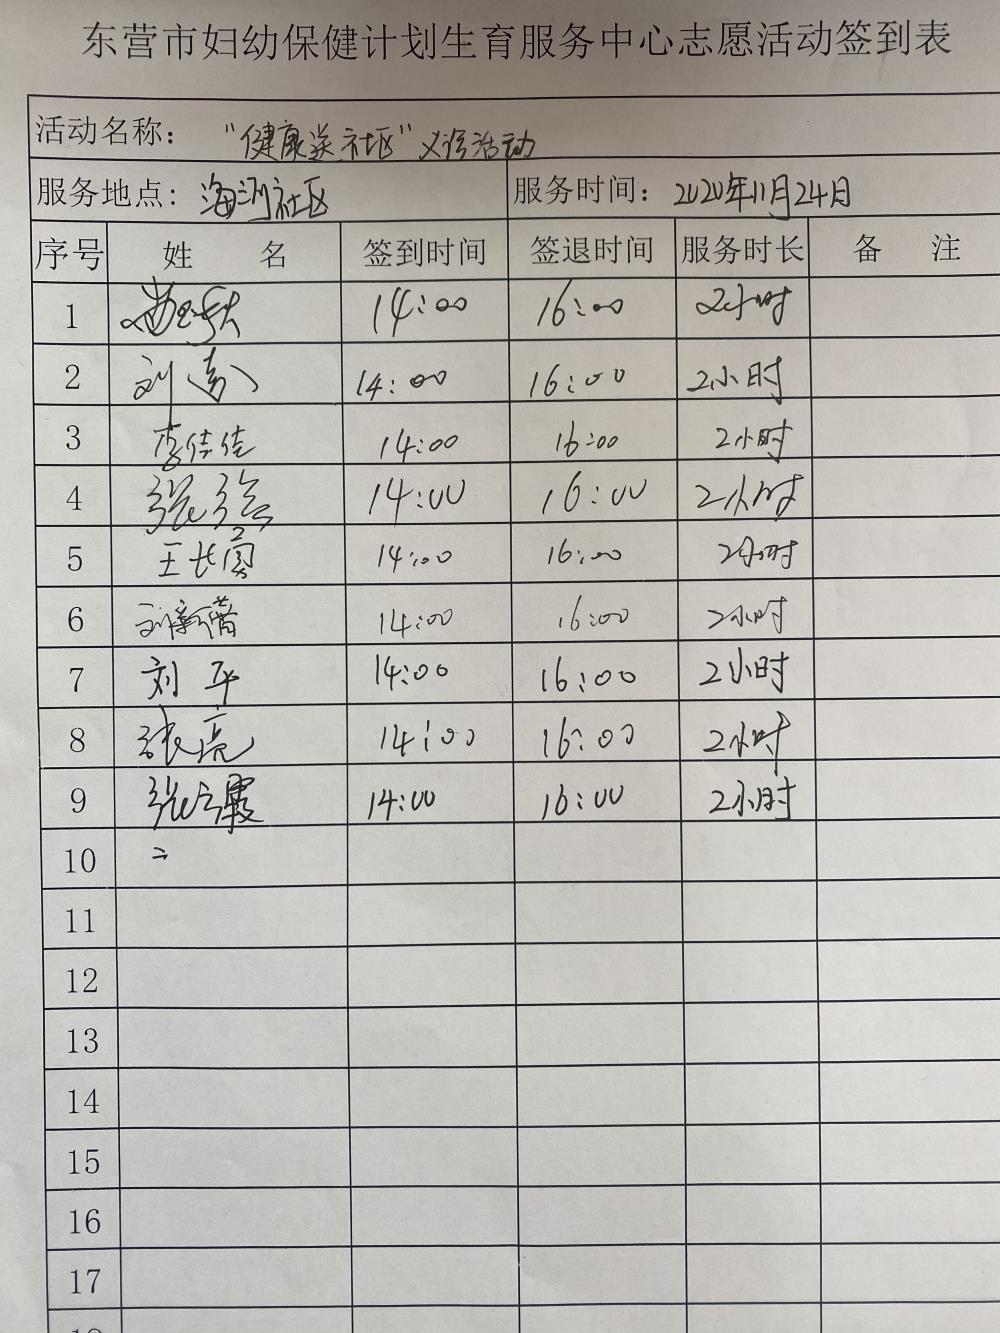 东营市妇幼保健计划生育服务中心志愿活动签到表
活动名称： “健康送社区”义诊活动
服务地点: 海河社区 服务时间: 2020年11月24日
序号 姓 名 签到时间 签退时间 服务时长 备 注
1 14:00 16:00 2小时
2 刘 14:00 16:00 2小时
3 李佳佳 14:00 16:00 2小时
4 张 14:00 16:00 2小时
5 王长 14:00 16:00 2小时
6 刘新蕾 14:00 16:00 2小时
7 刘平 14:00 16:00 2小时
8 张亮 14:00 16:00 2小时
9 张霞 14:00 16:00 2小时
10
11
12
13
14
15
16
17